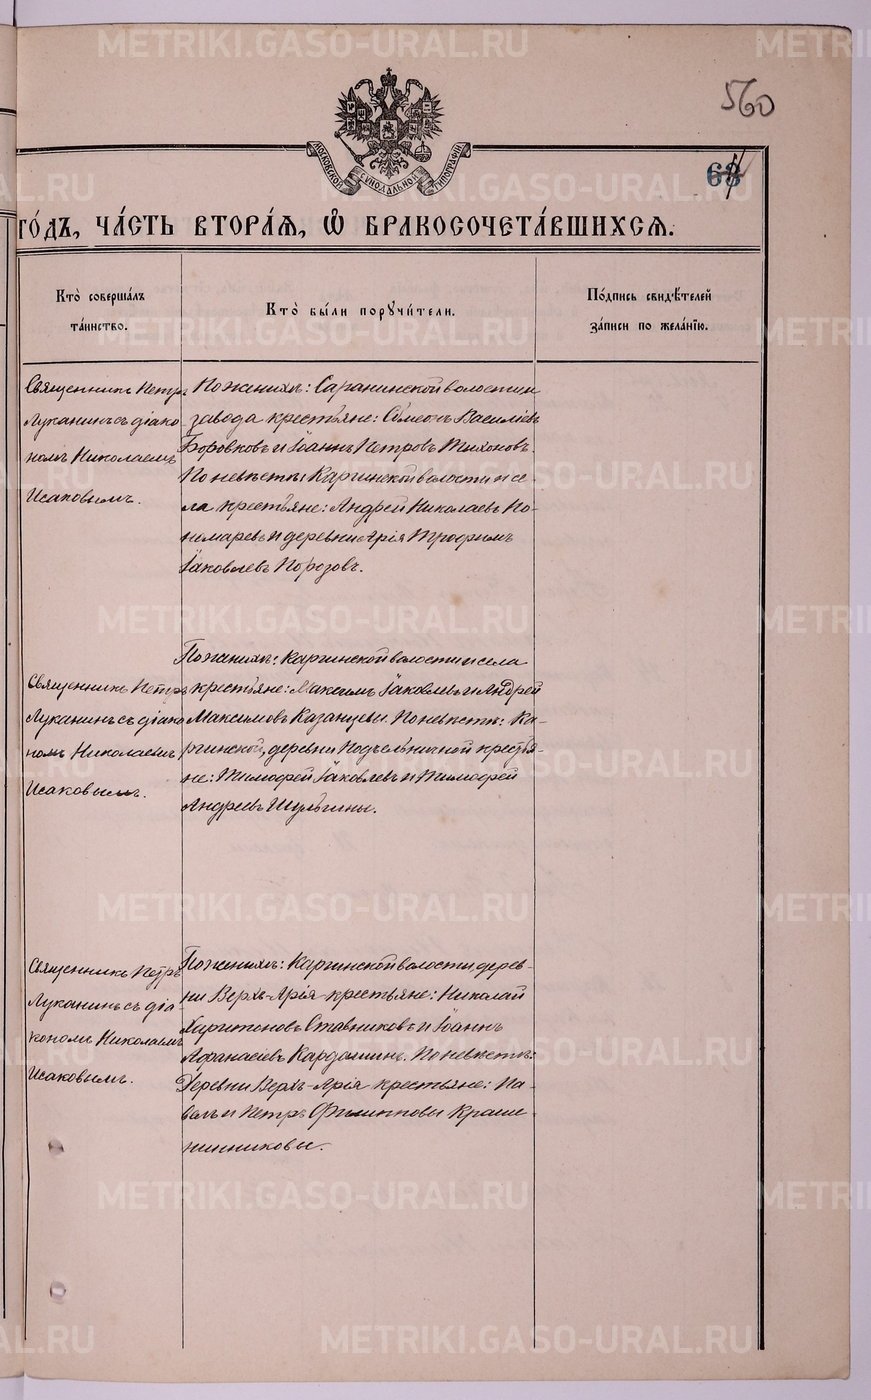 560
64
МОСКОВСКОЙ СѴНОДАЛЬНОЙ ТИПОГРАФІИ
го́дъ, ча́сть втора́я, ѽ бракосочета́вшихся.
Кто̀ соверша́лъ
та́инство.
Кто̀ бы́ли поручи́тели.
По́дпись свидѣ́телей
за́писи по жела́нїю.
Священникъ Петръ
Луканинъ съ діако
номъ Николаемъ
Исаковымъ.
По женихѣ: Саранинской волости и
завода крестьяне: Сѵмеонъ Василіевъ
Боровковъ и Іоаннъ Петровъ Тихоновъ.
По невѣстѣ: Каргинской волости и се-
ла крестьяне: Андрей Николаевъ По-
номаревъ и деревни Арія Трофимъ
Іаковлевъ Порозовъ.
Священникъ Петръ
Луканинъ съ діако
номъ Николаемъ
Исаковымъ.
По женихѣ: Каргинской волости и села
крестьяне: Максимъ Іаковлевъ и Андрей
Максимовъ Казанцевы. По невѣстѣ: Ка-
ргинской, деревни Подъельничной крестья-
не: Тимофей Іаковлевъ и Тимофей
Андреевъ Шульгины.
Священникъ Петръ
Луканинъ съ діа-
кономъ Николаемъ
Исаковымъ.
По женихѣ: Каргинской волости, дерев-
ни Верхъ-Арія крестьяне: Николай
Харитоновъ Ставниковъ и Іоаннъ
Афанасіевъ Кардашинъ. По невѣстѣ:
Деревни Верхъ-Арія крестьяне: Па-
велъ и Петръ Филипповы Краше-
нинниковы.
METRIKI.GASO-URAL.RU